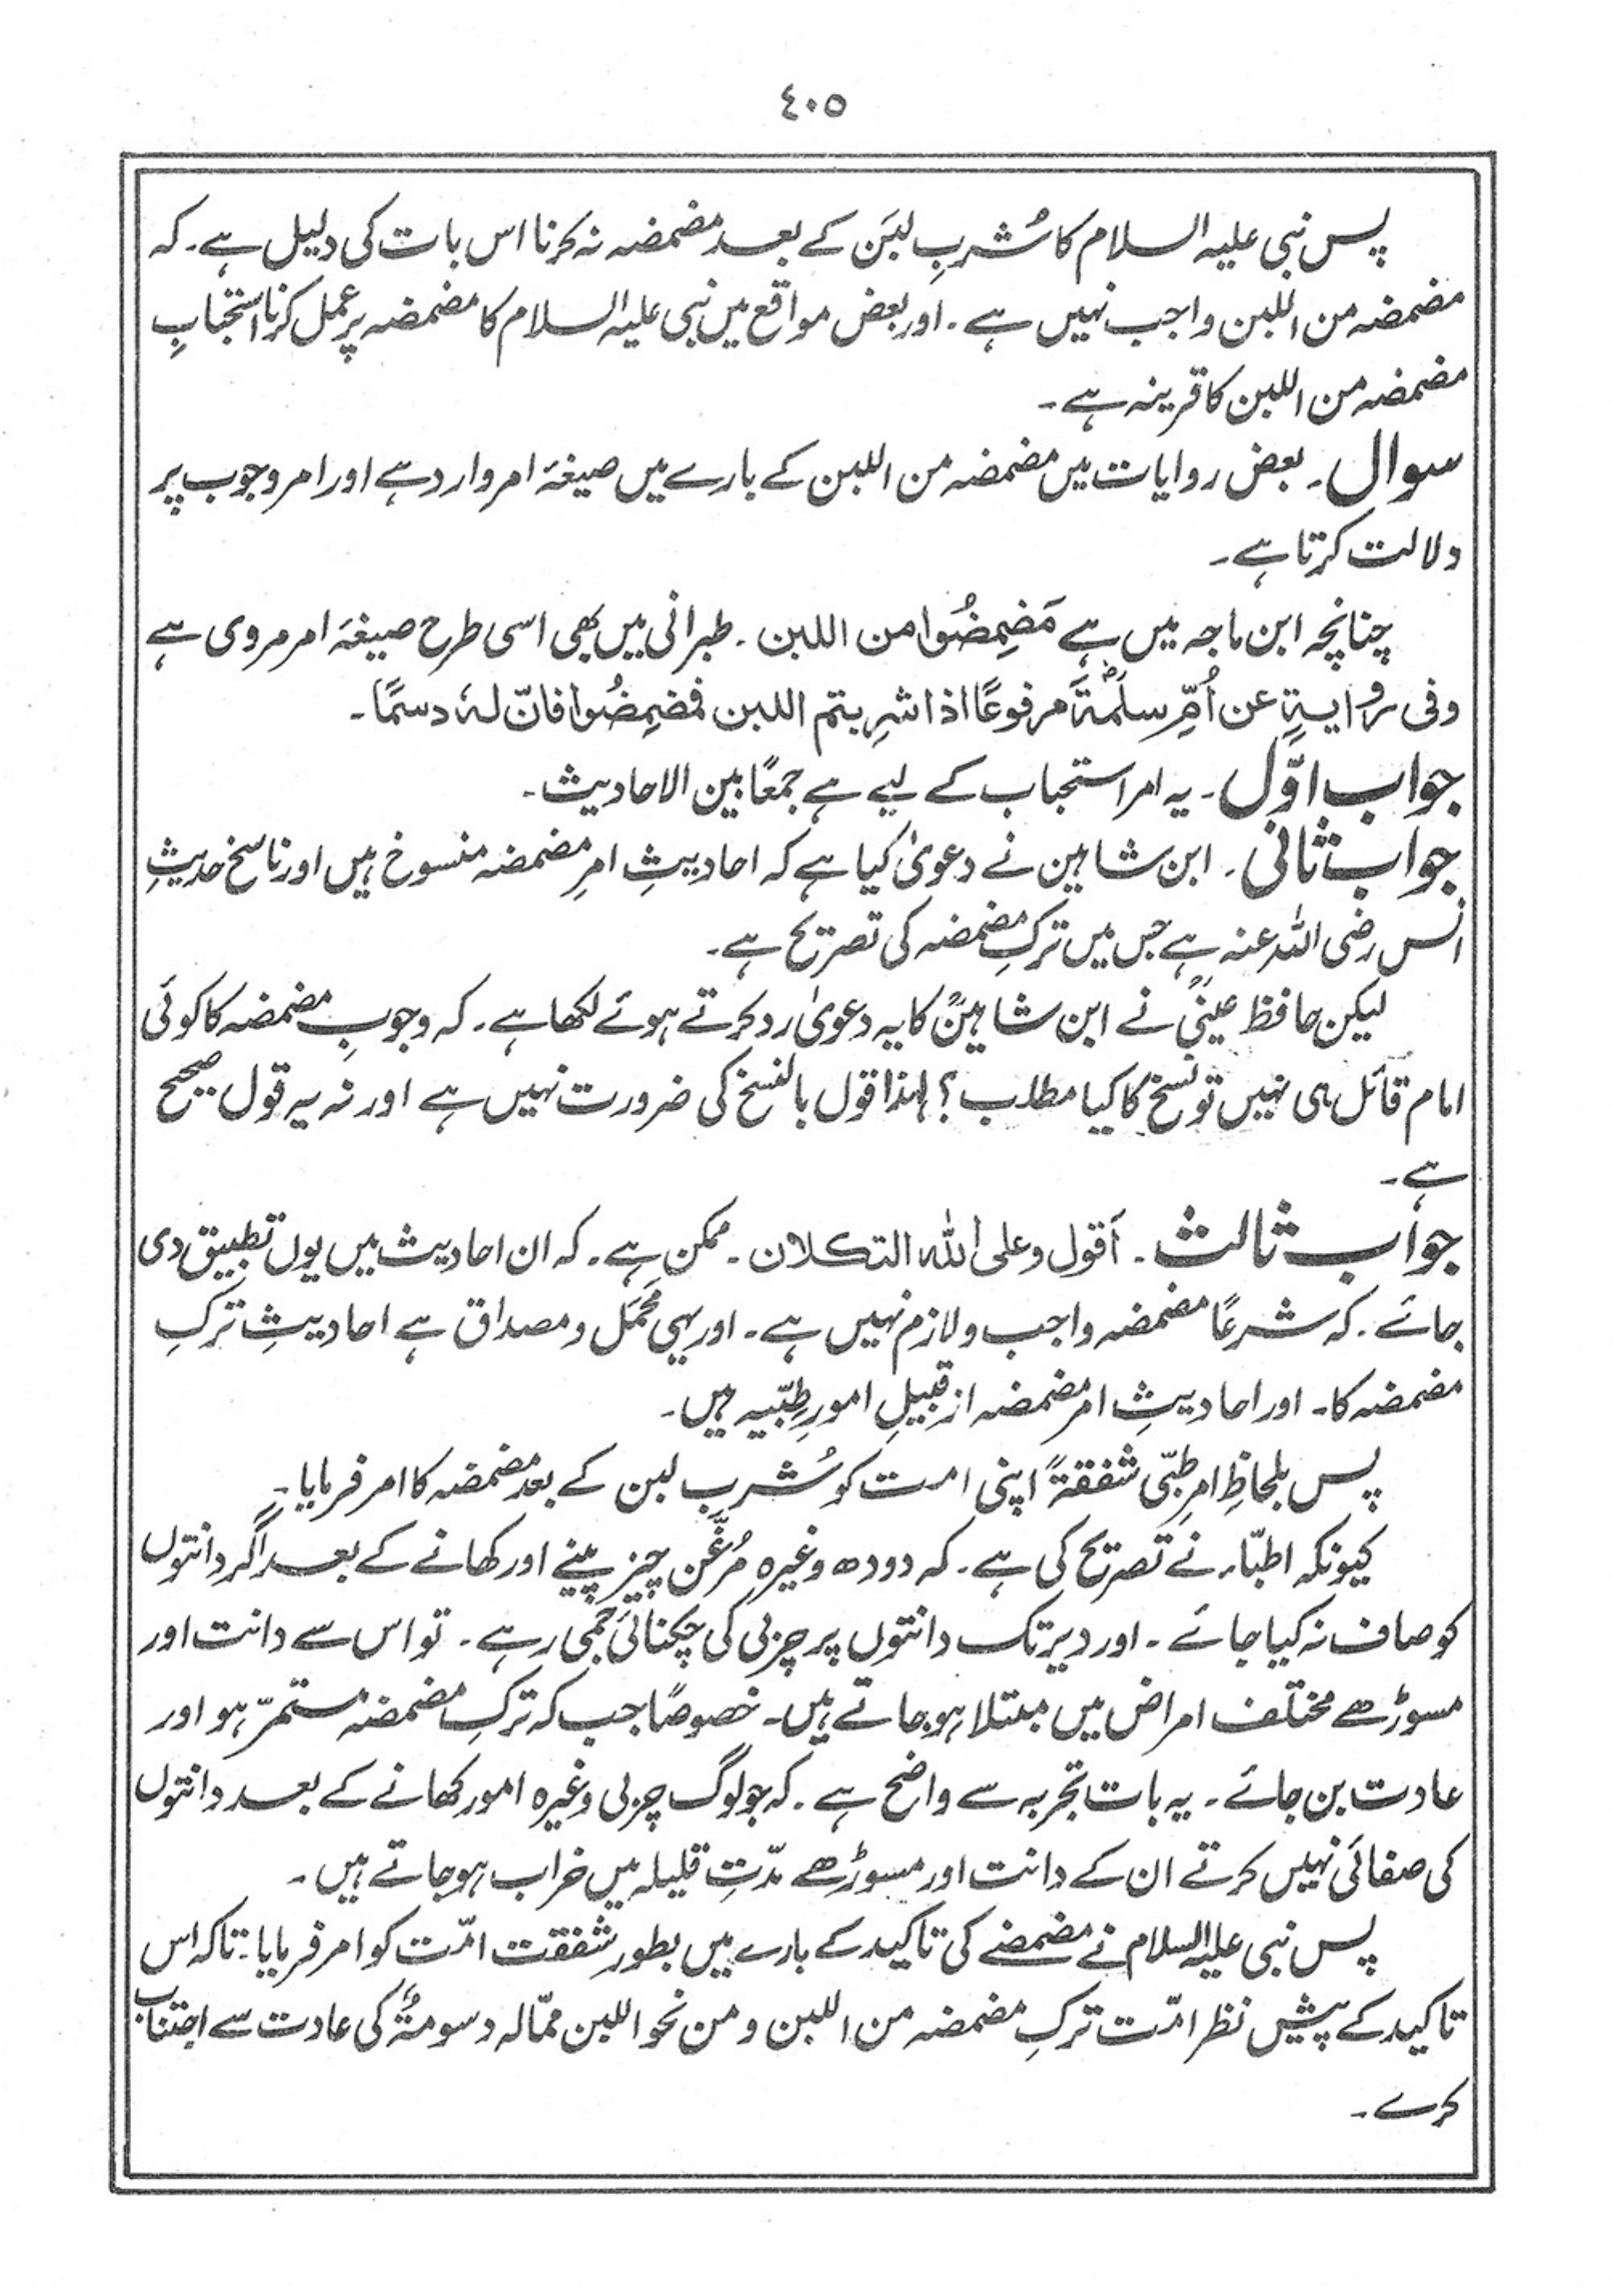 ٤٠٥
پس نبی علیہ السلام کا شُربِ لبَن کے بعد مضمضہ نہ کرنا اس بات کی دلیل ہے۔ کہ
مضمضہ من اللبن واجب نہیں ہے۔ اور بعض مواقع میں نبی علیہ السلام کا مضمضہ پر عمل کرنا استحبابِ
مضمضہ من اللبن کا قرینہ ہے۔
سوال۔ بعض روایات میں مضمضہ من اللبن کے بارے میں صیغۂ امر وارد ہے اور امر وجوب پر
دلالت کرتا ہے۔
چنانچہ ابن ماجہ میں ہے مَضمِضُوا من اللبن۔ طبرانی میں بھی اسی طرح صیغۂ امر مروی ہے
وفی روایۃٍ عن اُمِّ سلمَۃَؓ مرفوعًا اذا شربتم اللبن فمضمِضُوا فانّ لہٗ دسمًا۔
جواب اوّل۔ یہ امر استحباب کے لیے ہے جمعًا بین الاحادیث۔
جواب ثانی۔ ابن شاہین نے دعویٰ کیا ہے کہ احادیثِ امرِ مضمضہ منسوخ ہیں اور ناسخ حدیثِ
انس رضی اللہ عنہ ہے جس میں ترکِ مضمضہ کی تصریح ہے۔
لیکن حافظ عینیؒ نے ابن شاہینؒ کا یہ دعویٰ رد کرتے ہوئے لکھا ہے۔ کہ وجوبِ مضمضہ کا کوئی
امام قائل ہی نہیں تو نسخ کا کیا مطلب؟ لہٰذا قول بالنسخ کی ضرورت نہیں ہے اور نہ یہ قول صحیح
ہے۔
جواب ثالث۔ أقول وعلی اللہ التکلان۔ ممکن ہے۔ کہ ان احادیث میں یوں تطبیق دی
جائے۔ کہ شرعًا مضمضہ واجب و لازم نہیں ہے۔ اور یہی مَحمَل و مصداق ہے احادیثِ ترکِ
مضمضہ کا۔ اور احادیثِ امر مضمضہ از قبیلِ امورِ طِبّیہ ہیں۔
پس بلحاظِ امرِ طبّی شفقۃً اپنی امت کو شُربِ لبن کے بعد مضمضہ کا امر فرمایا۔
کیونکہ اطبّاء نے تصریح کی ہے۔ کہ دودھ وغیرہ مُرغّن چیز پینے اور کھانے کے بعد اگر دانتوں
کو صاف نہ کیا جائے۔ اور دیر تک دانتوں پر چربی کی چکنائی جمی رہے۔ تو اس سے دانت اور
مسوڑھے مختلف امراض میں مبتلا ہو جاتے ہیں۔ خصوصًا جب کہ ترکِ مضمضہ مستمرّ ہو اور
عادت بن جائے۔ یہ بات تجربہ سے واضح ہے۔ کہ جو لوگ چربی وغیرہ امور کھانے کے بعد دانتوں
کی صفائی نہیں کرتے ان کے دانت اور مسوڑھے مدّتِ قلیلہ میں خراب ہو جاتے ہیں۔
پس نبی علیہ السلام نے مضمضے کی تاکید کے بارے میں بطور شفقت امّت کو امر فرمایا۔ تاکہ اس
تاکید کے پیشِ نظر امّت ترکِ مضمضہ من اللبن و من نحو اللبن ممّا لہ دسومۃٌ کی عادت سے اجتناب
کرے۔